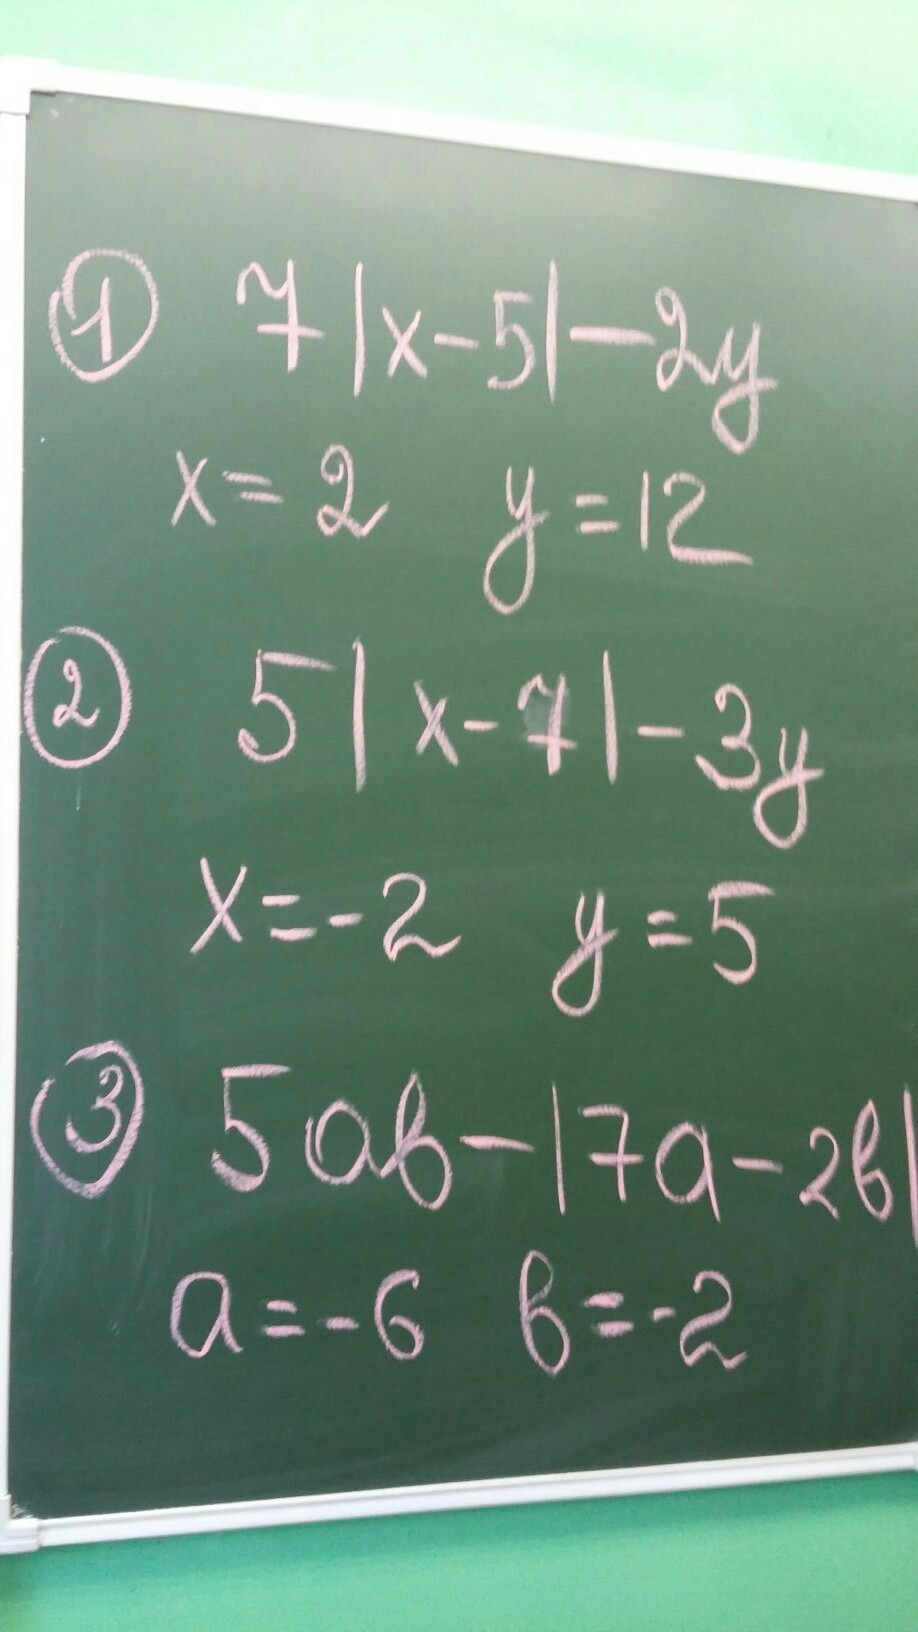 ① 7|x-5|-2y
x=2 y=12
② 5|x-7|-3y
x=-2 y=5
③ 5ab-|7a-2b|
a=-6 b=-2